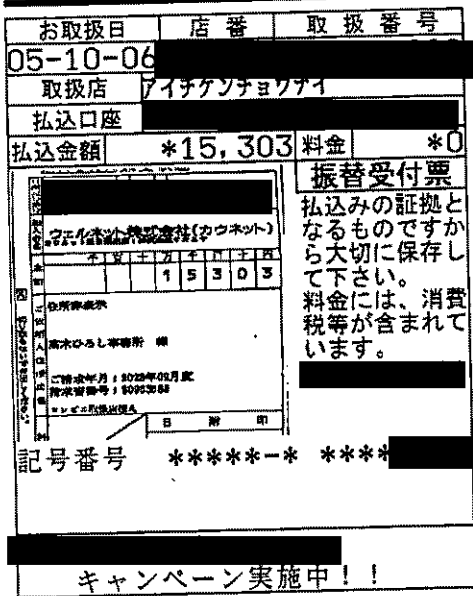 お取扱日 店番 取扱番号
05-10-06
取扱店 アイチケンチョウナイ
払込口座
払込金額 *15,303 料金 *0
振替受付票
払込みの証拠と
なるものですか
ら大切に保存し
て下さい。
料金には、消費
税等が含まれて
います。
ウェルネット株式会社(カウネット)
千 百 十 万 千 百 十 円
1 5 3 0 3
住所非表示
高木ひろし事務所 様
ご請求年月:2023年09月度
コンビニ取扱店控え
日 附 印
記号番号 *****-* ****
キャンペーン実施中!!